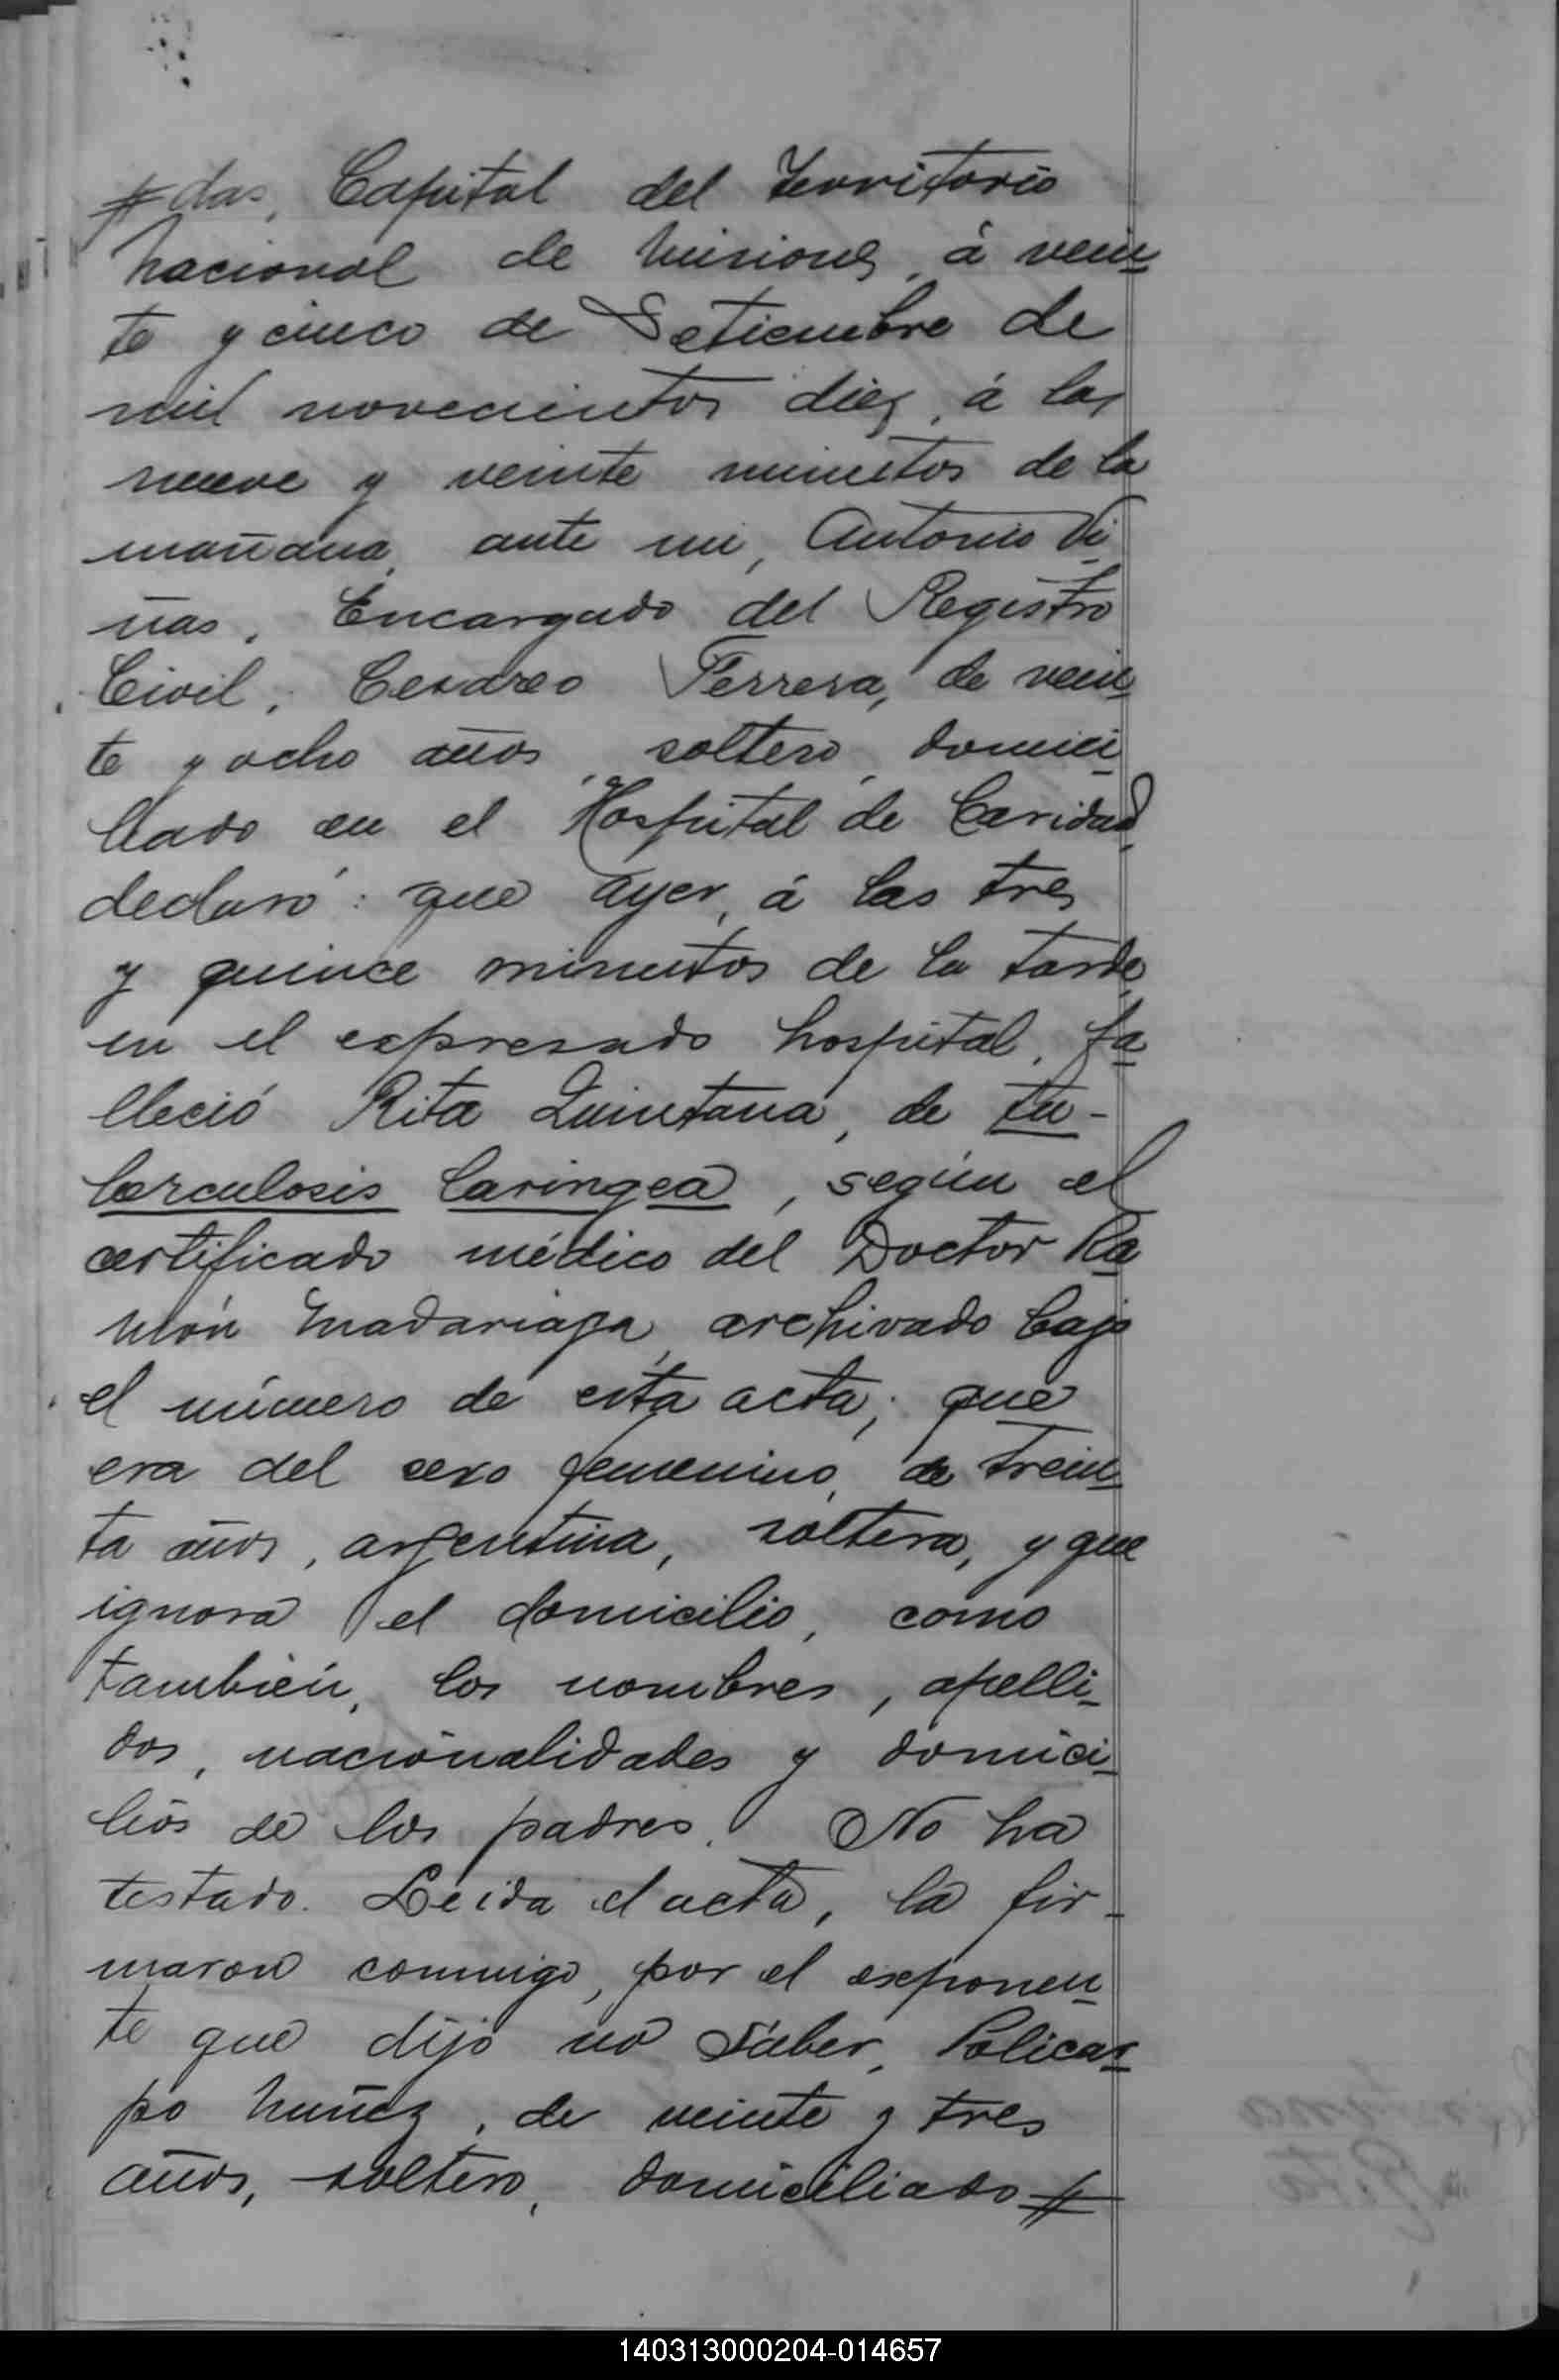 # das, Capital del Territorio
Nacional de Misiones, á vein-
te y cinco de Setiembre de
mil novecientos diez, á las
nueve y veinte minutos de la
mañana, ante mi, Antonio Vi-
ñas, Encargado del Registro
Civil, Cesareo Ferrera, de vein-
te y ocho años, soltero, domici-
liado en el Hospital de Caridad,
declaró: que ayer, á las tres
y quince minutos de la tarde,
en el expresado hospital, fa-
lleció Rita Quintana, de tu-
berculosis laringea, según el
certificado médico del Doctor Ra-
món Madariaga, archivado bajo
el número de esta acta; que
era del sexo femenino, de trein-
ta años, argentina, soltera, y que
ignora el domicilio, como
también, los nombres, apelli-
dos, nacionalidades y domici-
lios de los padres. No ha
testado. Leida el acta, la fir-
maron conmigo, por el exponen-
te que dijo no saber, Policar-
po Nuñez, de veinte y tres
años, soltero, domiciliado #
140313000204-014657